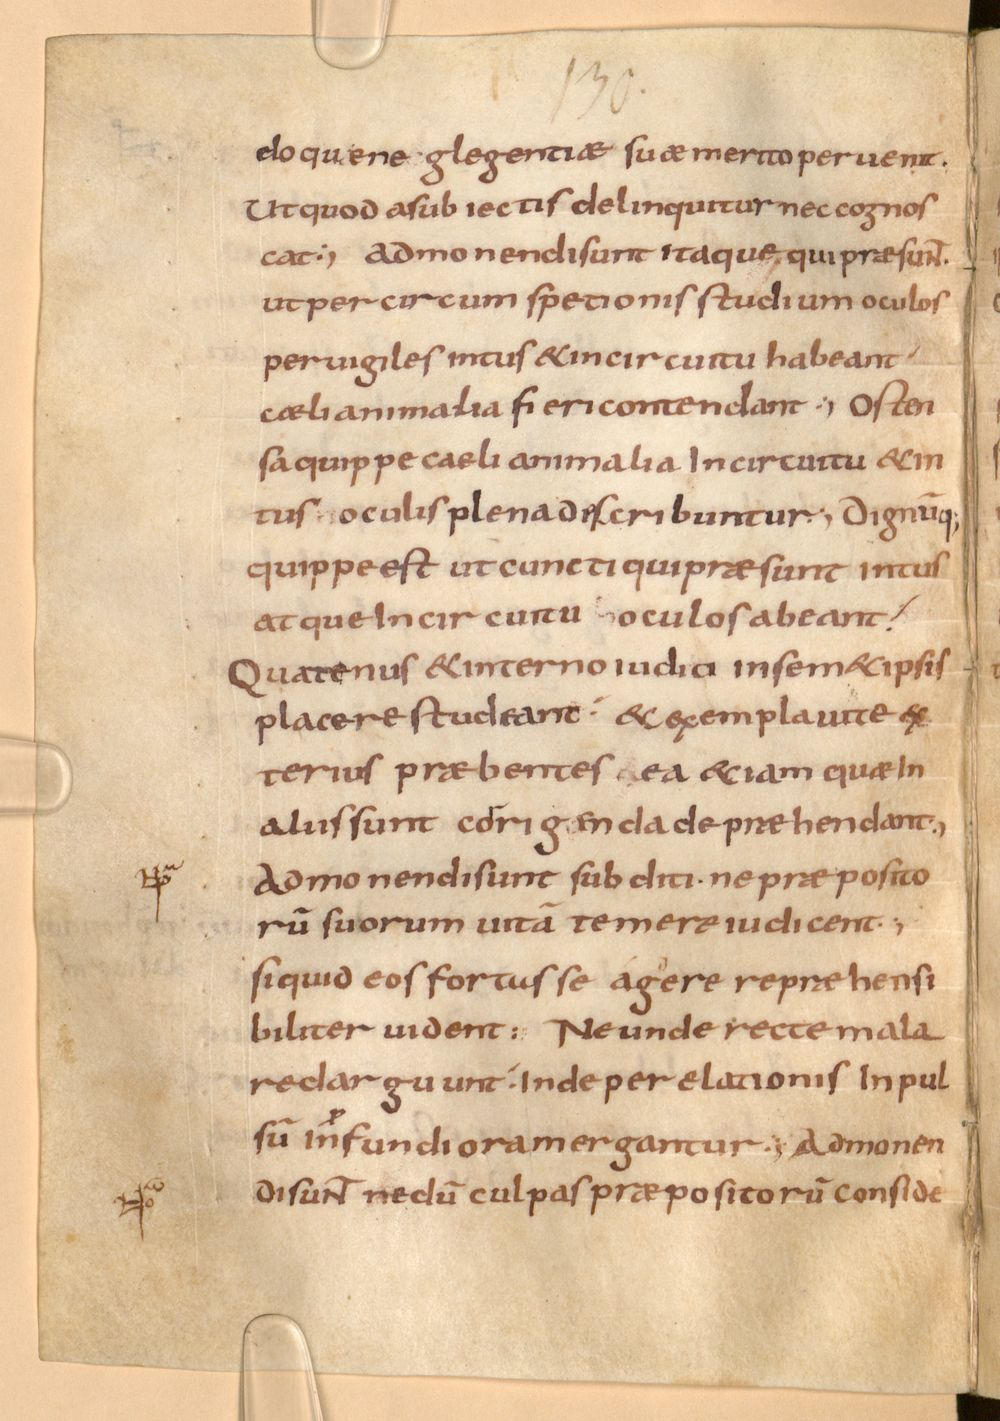 130.
do quene glegentiæ suæ merito peruenit.
Ut quod a subiectis delinquitur nec cognos
cat:, Admonendi sunt itaque, qui præsunt.
ut per circumspetionis studium oculos
peruigiles intus & in circuitu habeant
cæli animalia fieri contendant:, Osten
sa quippe caeli animalia In circuitu & in
tus oculis plena describuntur:, Dignūq;
quippe est ut cuncti qui præsunt intus
atque In circuitu oculos abeant.
Quatenus & interno iudici in sem&ipsis
placere studeant & exempla uite ex
terius præbentes ea &iam quæ In
aliis sunt corrigenda depræhendant:,
Admonendi sunt subditi. ne præposito
rū suorum uitā temere iudicent:,
si quid eos fortusse agere repræhensi
biliter uident: Ne unde recte mala
redarguunt. Inde per elationis Inpul
sū in profundiora mergantur:, Admonen
di sunt ne dū culpas præpositorū conside